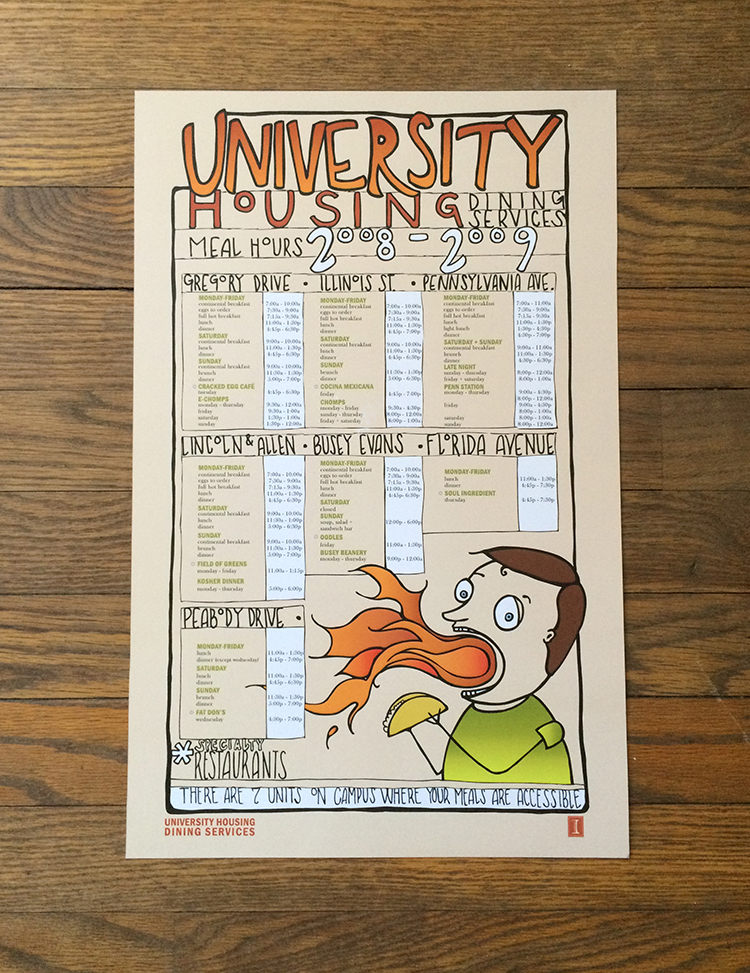 UNIVERSITY
HOUSING DINING SERVICES
MEAL HOURS 2008-2009
GREGORY DRIVE • ILLINOIS ST. • PENNSYLVANIA AVE.
MONDAY-FRIDAY
continental breakfast 7:00a - 10:00a
eggs to order 7:30a - 9:00a
full hot breakfast 7:15a - 9:30a
lunch 11:00a - 1:30p
dinner 4:45p - 6:30p
SATURDAY
continental breakfast 9:00a - 10:00a
lunch 11:00a - 1:30p
dinner 4:45p - 6:30p
SUNDAY
continental breakfast 9:00a - 10:00a
brunch 11:30a - 1:30p
dinner 5:00p - 7:00p
CRACKED EGG CAFÉ
tuesday 4:45p - 6:30p
E-CHOMPS
monday - thursday 9:30a - 12:00a
friday 9:30a - 1:00a
saturday 1:30p - 1:00a
sunday 1:30p - 12:00a
MONDAY-FRIDAY
continental breakfast 7:00a - 10:00a
eggs to order 7:30a - 9:00a
full hot breakfast 7:15a - 9:30a
lunch 11:00a - 1:30p
dinner 4:45p - 7:00p
SATURDAY
continental breakfast 9:00a - 10:00a
lunch 11:00a - 1:30p
dinner 4:45p - 6:30p
SUNDAY
brunch 11:30a - 1:30p
dinner 5:00p - 6:30p
COCINA MEXICANA
friday 4:45p - 6:30p
CHOMPS
monday - friday 9:30a - 4:30p
sunday - thursday 8:00p - 12:00a
friday + saturday 8:00p - 1:00a
MONDAY-FRIDAY
continental breakfast 7:00a - 11:00a
eggs to order 7:30a - 9:00a
full hot breakfast 7:15a - 9:30a
lunch 11:00a - 1:30p
light lunch 1:30p - 4:30p
dinner 4:30p - 7:00p
SATURDAY + SUNDAY
continental breakfast 9:00a - 11:00a
brunch 11:00a - 1:30p
dinner 4:30p - 6:30p
LATE NIGHT
sunday - thursday 8:00p - 12:00a
friday + saturday 8:00p - 1:00a
PENN STATION
monday - thursday 9:00a - 4:30p
8:00p - 12:00a
friday 9:00a - 4:30p
8:00p - 1:00a
saturday 8:00p - 1:00a
sunday 8:00p - 12:00a
LINCOLN & ALLEN • BUSEY EVANS • FLORIDA AVENUE
MONDAY-FRIDAY
continental breakfast 7:00a - 10:00a
eggs to order 7:30a - 9:00a
full hot breakfast 7:15a - 9:30a
lunch 11:00a - 1:30p
dinner 4:45p - 6:30p
SATURDAY
continental breakfast 9:00a - 10:00a
lunch 11:30a - 1:00p
dinner 5:00p - 6:30p
SUNDAY
continental breakfast 9:00a - 10:00a
brunch 11:30a - 1:30p
dinner 5:00p - 7:00p
FIELD OF GREENS
monday - friday 11:00a - 1:15p
KOSHER DINNER
monday - thursday 5:00p - 6:00p
MONDAY-FRIDAY
continental breakfast 7:00a - 10:00a
eggs to order 7:30a - 9:00a
full hot breakfast 7:15a - 9:30a
lunch 11:00a - 1:30p
dinner 4:45p - 6:30p
SATURDAY
closed
SUNDAY
soup, salad + sandwich bar 12:00p - 6:00p
OODLES
friday 11:00a - 1:30p
BUSEY BEANERY
monday - thursday 9:00p - 12:00a
MONDAY-FRIDAY
lunch 11:00a - 1:30p
dinner 4:45p - 7:30p
SOUL INGREDIENT
thursday 4:45p - 7:30p
PEABODY DRIVE •
MONDAY-FRIDAY
lunch 11:00a - 1:30p
dinner (except wednesday) 4:45p - 7:00p
SATURDAY
lunch 11:00a - 1:30p
dinner 4:45p - 6:30p
SUNDAY
brunch 11:30a - 1:30p
dinner 5:00p - 7:00p
FAT DON'S
wednesday 4:30p - 7:00p
* SPECIALTY
RESTAURANTS
THERE ARE 7 UNITS ON CAMPUS WHERE YOUR MEALS ARE ACCESSIBLE
UNIVERSITY HOUSING
DINING SERVICES
I